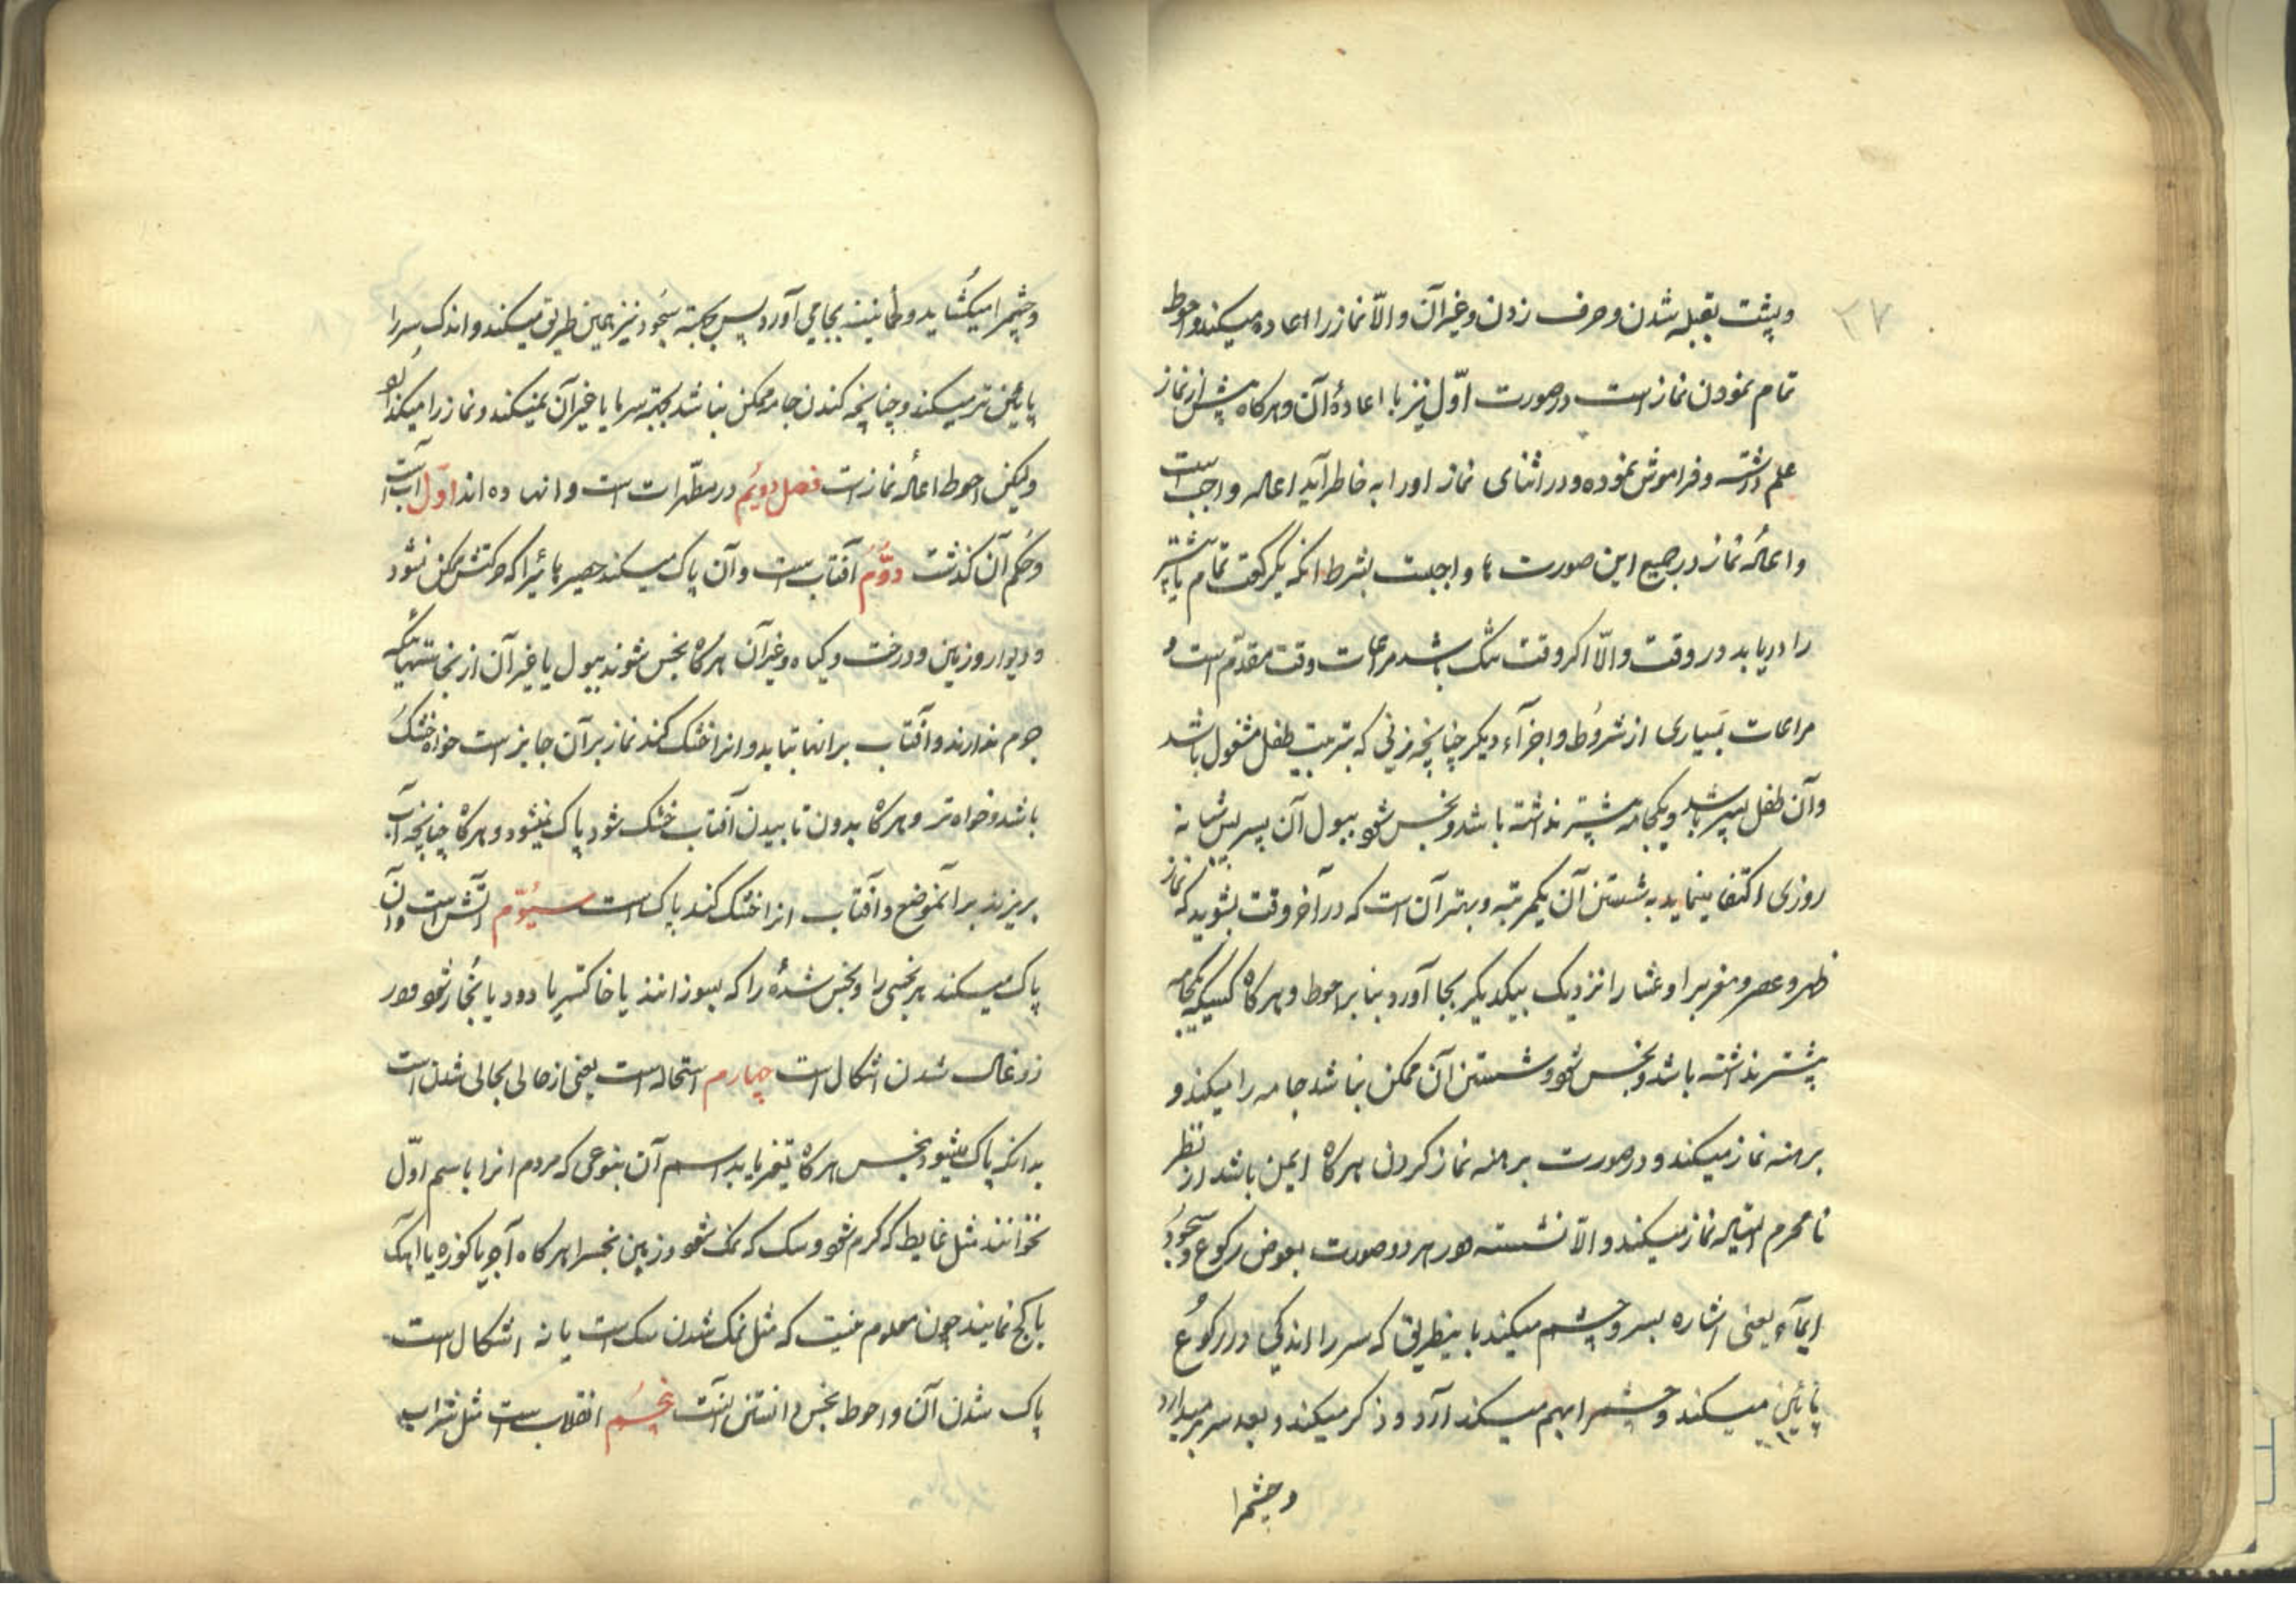 ۳۷
وپشت بقبله شدن وحرف زدن وغیر آن والّا نماز را اعاده میکند واحوط
تمام نمودن نماز است در صورت اوّل نیز با اعادهٔ آن وهرکاه پیش از نماز
علم داشته وفراموش نموده ودر اثنای نماز اورا به خاطر آید اعاده واجب است
واعادهٔ نماز در جمیع این صورت ها واجبست بشرط انکه یکرکعت تمام یا بیشتر
را دریابد در وقت والّا اکر وقت تنک باشد مراعات وقت مقدّم است و
مراعات بسیاری از شروط واجزآء دیکر چنانچه زنی که بتربیت طفل مشغول باشد
وآن طفل پسر باشد ویکجامه بیشتر نداشته باشد ونجس شود ببول آن پسر پس شبانه
روزی اکتفا مینماید به شستن آن یکمرتبه وبهتر آن است که در آخر وقت بشوید که نماز
ظهر وعصر ومغرب را وعشا را نزدیک بیکدیکر بجا آورد بنابر احوط وهرکاه کسیکه یکجامه
بیشتر نداشته باشد ونجس شود وشستن آن ممکن نباشد جامه را میکند و
برهنه نماز میکند ودر صورت برهنه نماز کردن هرکاه ایمن باشد از نظر
نامحرم ایستاده نماز میکند والّا نشسته ودر هر دو صورت بعوض رکوع وسجود
ایمآء یعنی اشاره بسر وچشم میکند باینطریق که سر را اندکی در رکوع
پائین میکند وچشمرا بهم میکذارد وذکر میکند وبعد سر برمیدارد
وچشمرا
وچشمرا میکشاید وطمانینه بجا می آورد پس بجهته سجود نیز بهمین طریق میکند واندک سر را
پایئن تر میکند وچنانچه کندن جامه ممکن نباشد بجهته سرما یا غیر آن نمیکند ونماز را میکند
ولیکن احوط اعادهٔ نماز است فصل دویُم در مطهّرات است وانها ده اند اوّل آب است
وحُکم آن کذشت دوُّم آفتاب است وآن پاک میکند حصیر وچیز هائیرا که حرکتش ممکن نشود
ودیوار وزمین ودرخت وکیاه وغیر آن هرکاه نجس شوند ببول یا غیر آن از نجاستهائیکه
جرم ندارند وآفتاب بر انها بتابد وانرا خشک کند نماز بر آن جایز است خواه خشک
باشد وخواه تر وهرکاه بدون تابیدن آفتاب خشک شود پاک نمیشود وهرکاه چنانچه آب
بریزند بر آنموضع وآفتاب انرا خشک کند پاک است سیُوّم آتش است وآن
پاک میکند هر نجسی را ونجس شدهٔ را که بسوزانند یا خاکستر یا دود یا بُخار شود ودر
زوغال شدن اشکال است چهارم استحاله است یعنی از حالی بحالی شدن است
بدانکه پاک میشود نجس هرکاه تغیر یابد اسم آن بنوعی که مردم انرا باسم اوّل
نخوانند مثل غایط که کرم شود وسک که نمک شود وزمین نجسرا هرکاه آجر یا کوزه یا اهک
یا کچ نمایند چون معلوم نیست که مثل نمک شدن سک است یا نه اشکال است
پاک شدن آن واحوط نجس دانستن آنست پنجُم انقلاب است مثل شراب